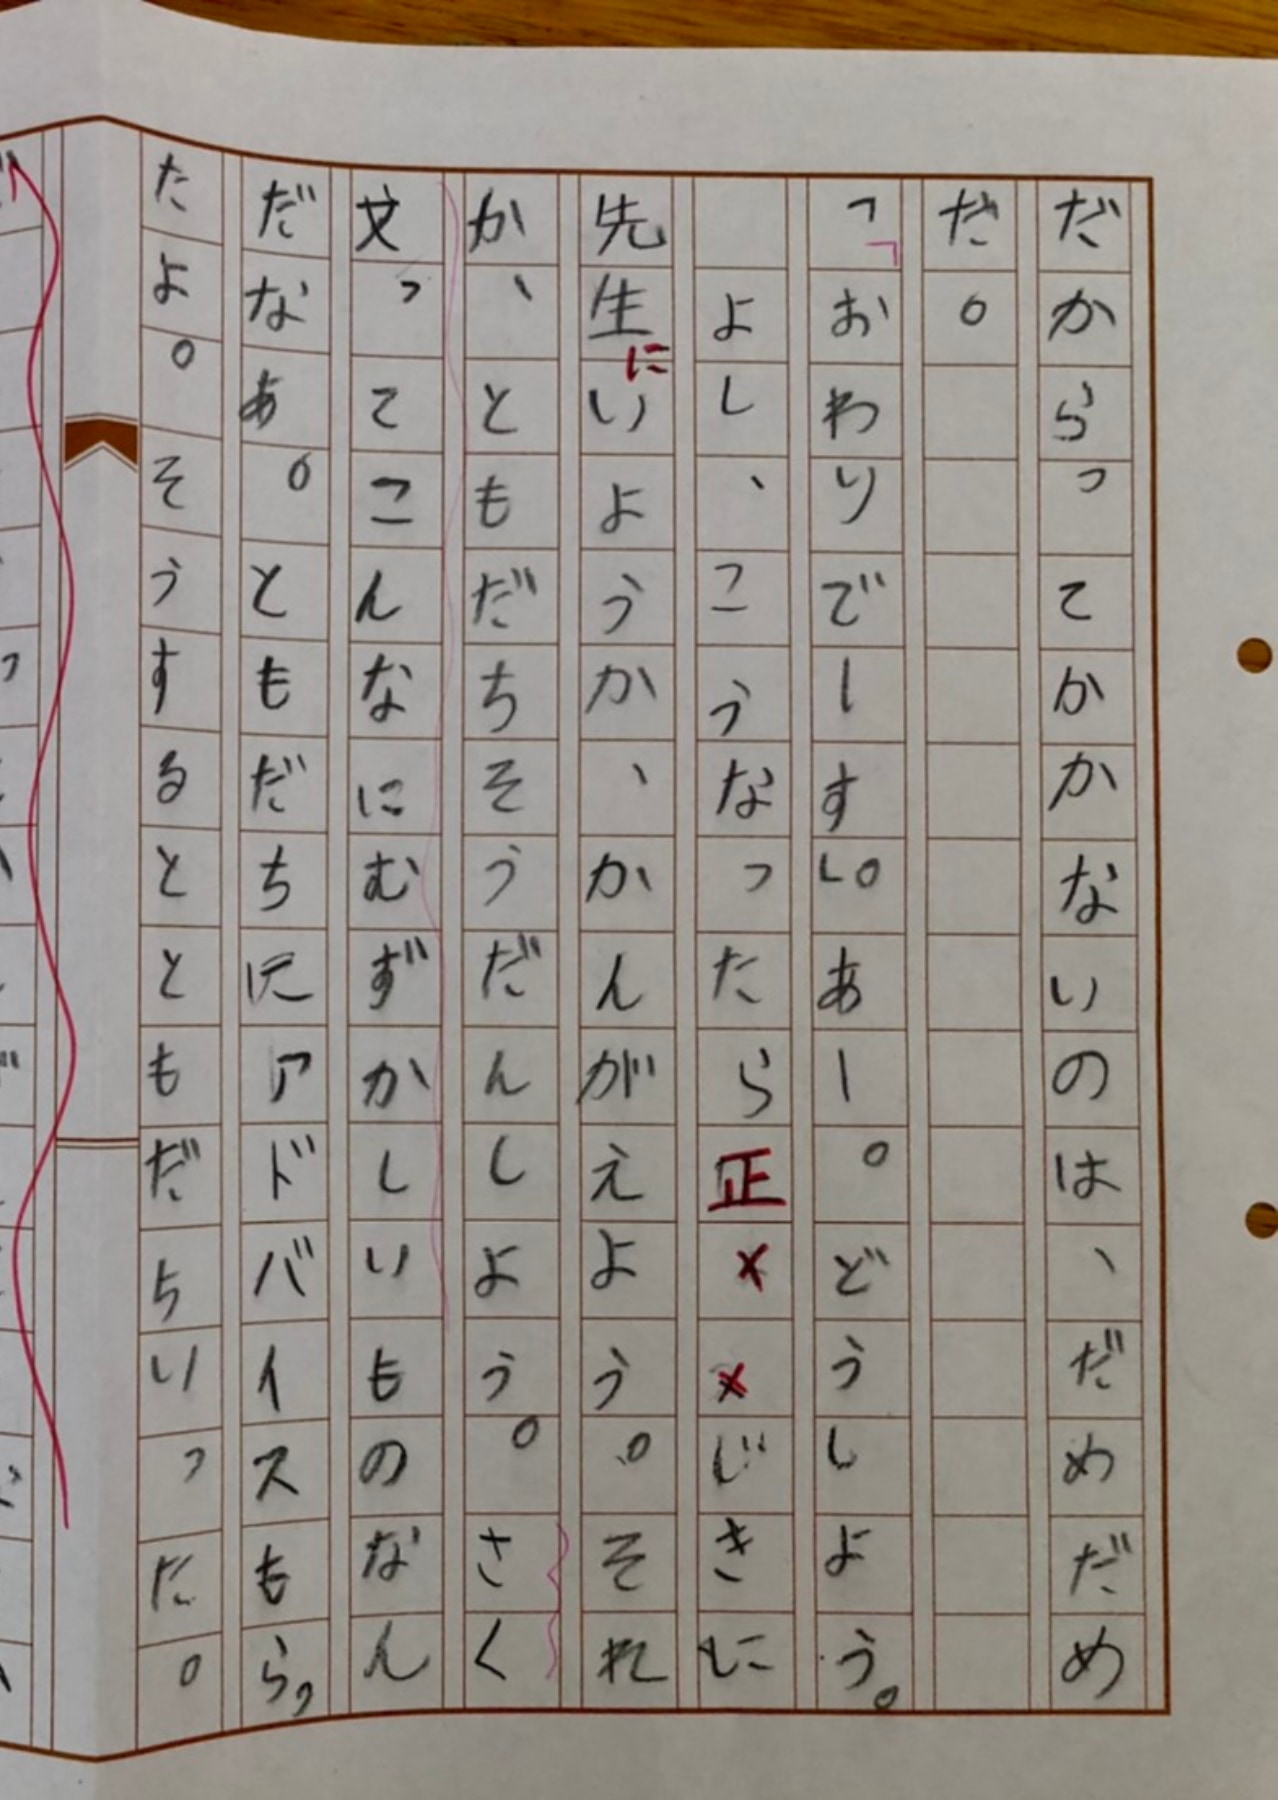 だからってかかないのは、だめだめ
だ。
「おわりでーす」。あー。どうしよう。
よし、こうなったら正××じきに
先生にいようか、かんがえよう。それ
か、ともだちそうだんしよう。さく
文ってこんなにむずかしいものなん
だなあ。ともだちにアドバイスもらっ
たよ。そうするとともだちいった。